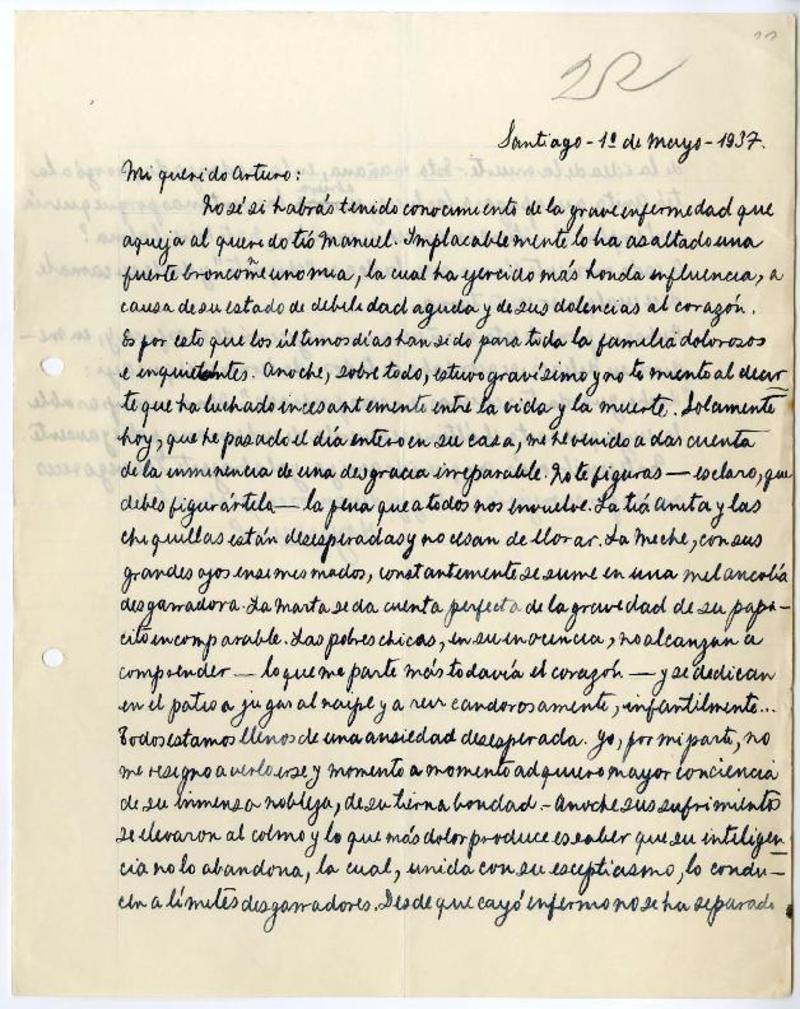 22
Santiago - 1º de Mayo - 1937.
Mi querido Arturo:
No sé si habrás tenido conocimiento de la grave enfermedad que
aqueja al querido tió Manuel. Implacablemente lo ha asaltado una
fuerte bronconeunomia, la cual ha ejercido más honda influencia, a
causa de su estado de debilidad aguda y de sus dolencias al corazón.
Es por esto que los últimos días han sido para toda la familia dolorosos
e inquietantes. Anoche, sobre todo, estuvo gravísimo y no te miento al decir
te que ha luchado incesantemente entre la vida y la muerte. Solamente
hoy, que he pasado el día entero en su casa, me he venido a dar cuenta
de la inminencia de una desgracia irreparable. No te figuras — es claro, que
debes figurártela — la pena que a todos nos envuelve. La tiá Anita y las
chiquillas están desesperadas y no cesan de llorar. La Meche, con sus
grandes ojos ensimesmados, constantemente se sume en una melancolía
desgarradora. La Marta se da cuenta perfecta de la gravedad de su papa-
cito incomparable. Las pobres chicas, en su inocencia, no alcanzan a
comprender — lo que me parte más todavía el corazón — y se dedican
en el patio a jugar al naipe y a reir candorosamente, infantilmente...
Todos estamos llenos de una ansiedad desesperada. Yo, por mi parte, no
me resigno a verlo irse y momento a momento adquiero mayor conciencia
de su inmensa nobleza, de su tierna bondad. - Anoche sus sufrimientos
se elevaron al colmo y lo que más dolor produce es saber que su inteligen
cia no lo abandona, la cual, unida con su escepticismo, lo condu-
cen a límites desgarradores. Desde que cayó enfermo no se ha separado